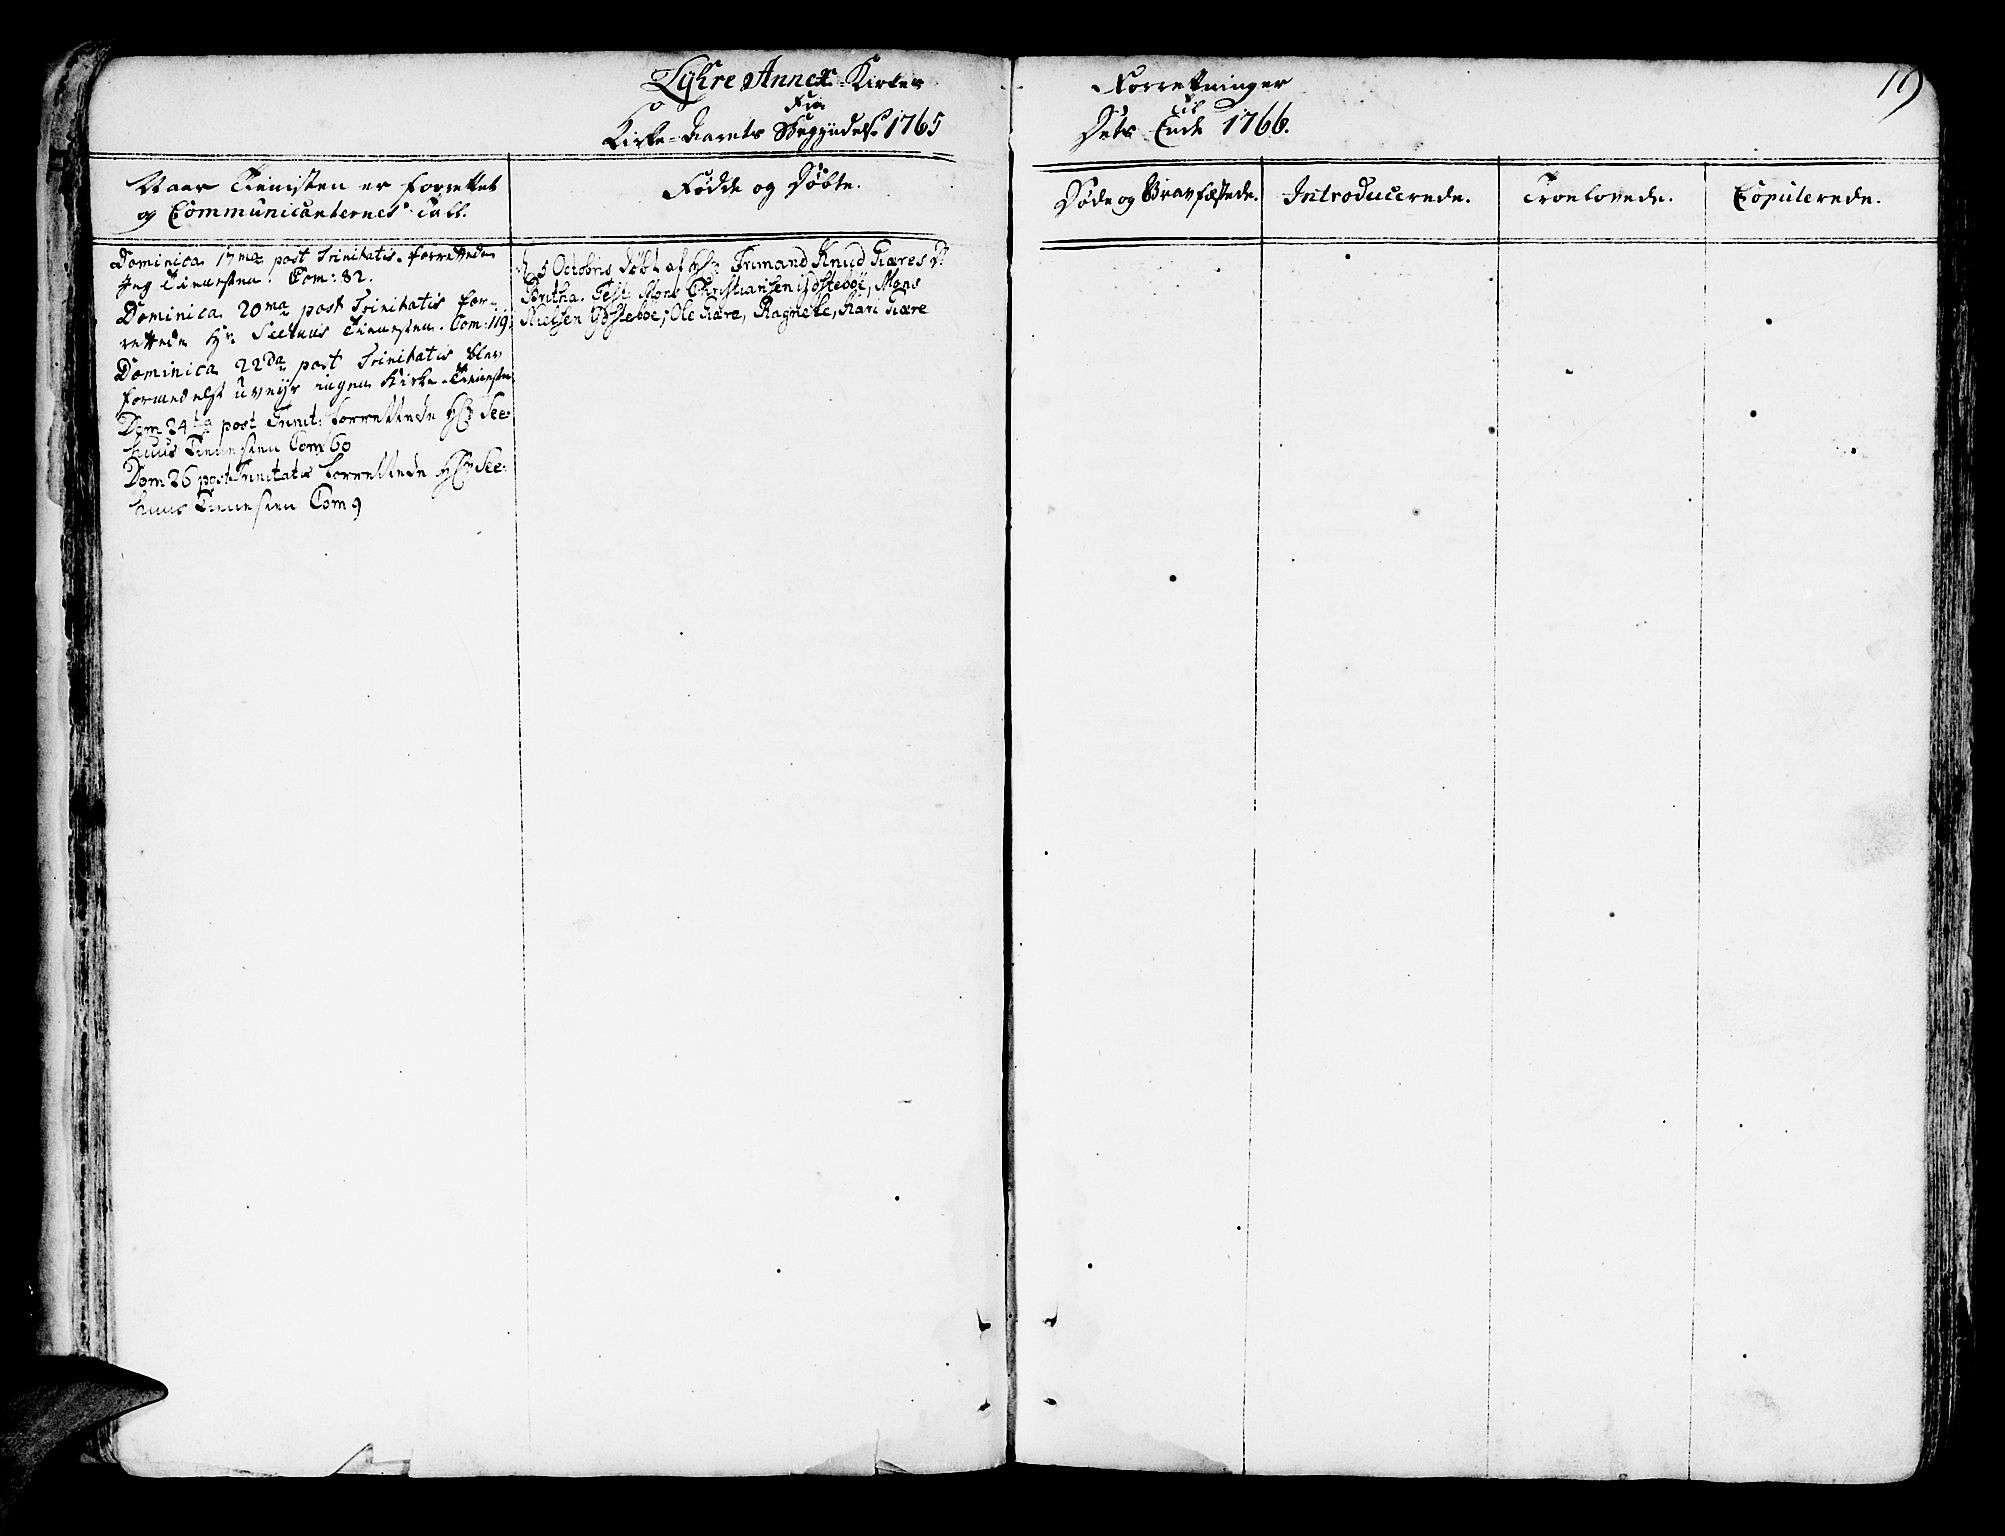 Lyhre Annex-Kirkes Forretninger
17
Fra
Kirke-Aarets Begyndelse 1765
til
Dets Ende 1766.
Naar Tienisten er forrettet
og Communicanternes Tall.
Fødde og Døbte.
Døde og Gravfæstede.
Introducerede.
Troelovede.
Copulerede.
Dominica 17ma post Trinitatis forrettede
Jeg Tienesten. Com: 82.
Dominica 20ma post Trinitatis for-
rettede Hr. Seehuus Tienesten. Com: 119.
Dominica 22da post Trinitatis blev
formedelst uveyr ingen Kirke-Tieneste
Dom 24ta post Trinit: forrettede Hr See-
huus Tienesten Com 60
Dom 26 post Trinitatis forrettede Hr See-
huus Tienesten Com 9
5 Octobris døbt af Hr Frimand Knud Kiæres D:
Britha. Test: Mons Christiansen Giøstebøe, Mons
Nielsen Giøstebøe, Ole Kiære, Ragnele, Kari Kiære